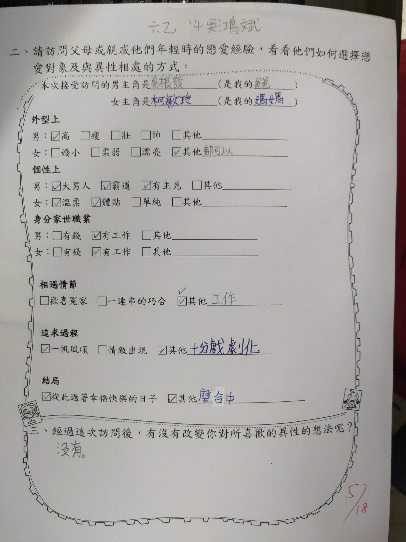 六乙 14 吳鴻斌
二、請訪問父母或親戚他們年輕時的戀愛經驗，看看他們如何選擇戀
愛對象及與異性相處的方式。
本次接受訪問的男主角是吳根發(是我的爸爸)
女主角是柯敏玫(是我的媽媽)
外型上
男：☑高 □瘦 □壯 □帥 □其他
女：□嬌小 □柔弱 □漂亮 ☑其他 都可以
個性上
男：☑大男人 ☑霸道 ☑有主見 □其他
女：☑溫柔 ☑體貼 □單純 □其他
身分家世職業
男：□有錢 ☑有工作 □其他
女：□有錢 ☑有工作 □其他
相遇情節
□歡喜冤家 □一連串的巧合 ☑其他 工作
追求過程
☑一帆風順 □情敵出現 ☑其他 十分戲劇化
結局
☑從此過著幸福快樂的日子 ☑其他 磨合中
三、經過這次訪問後，有沒有改變你對所喜歡的異性的想法呢？
沒有。
5/18